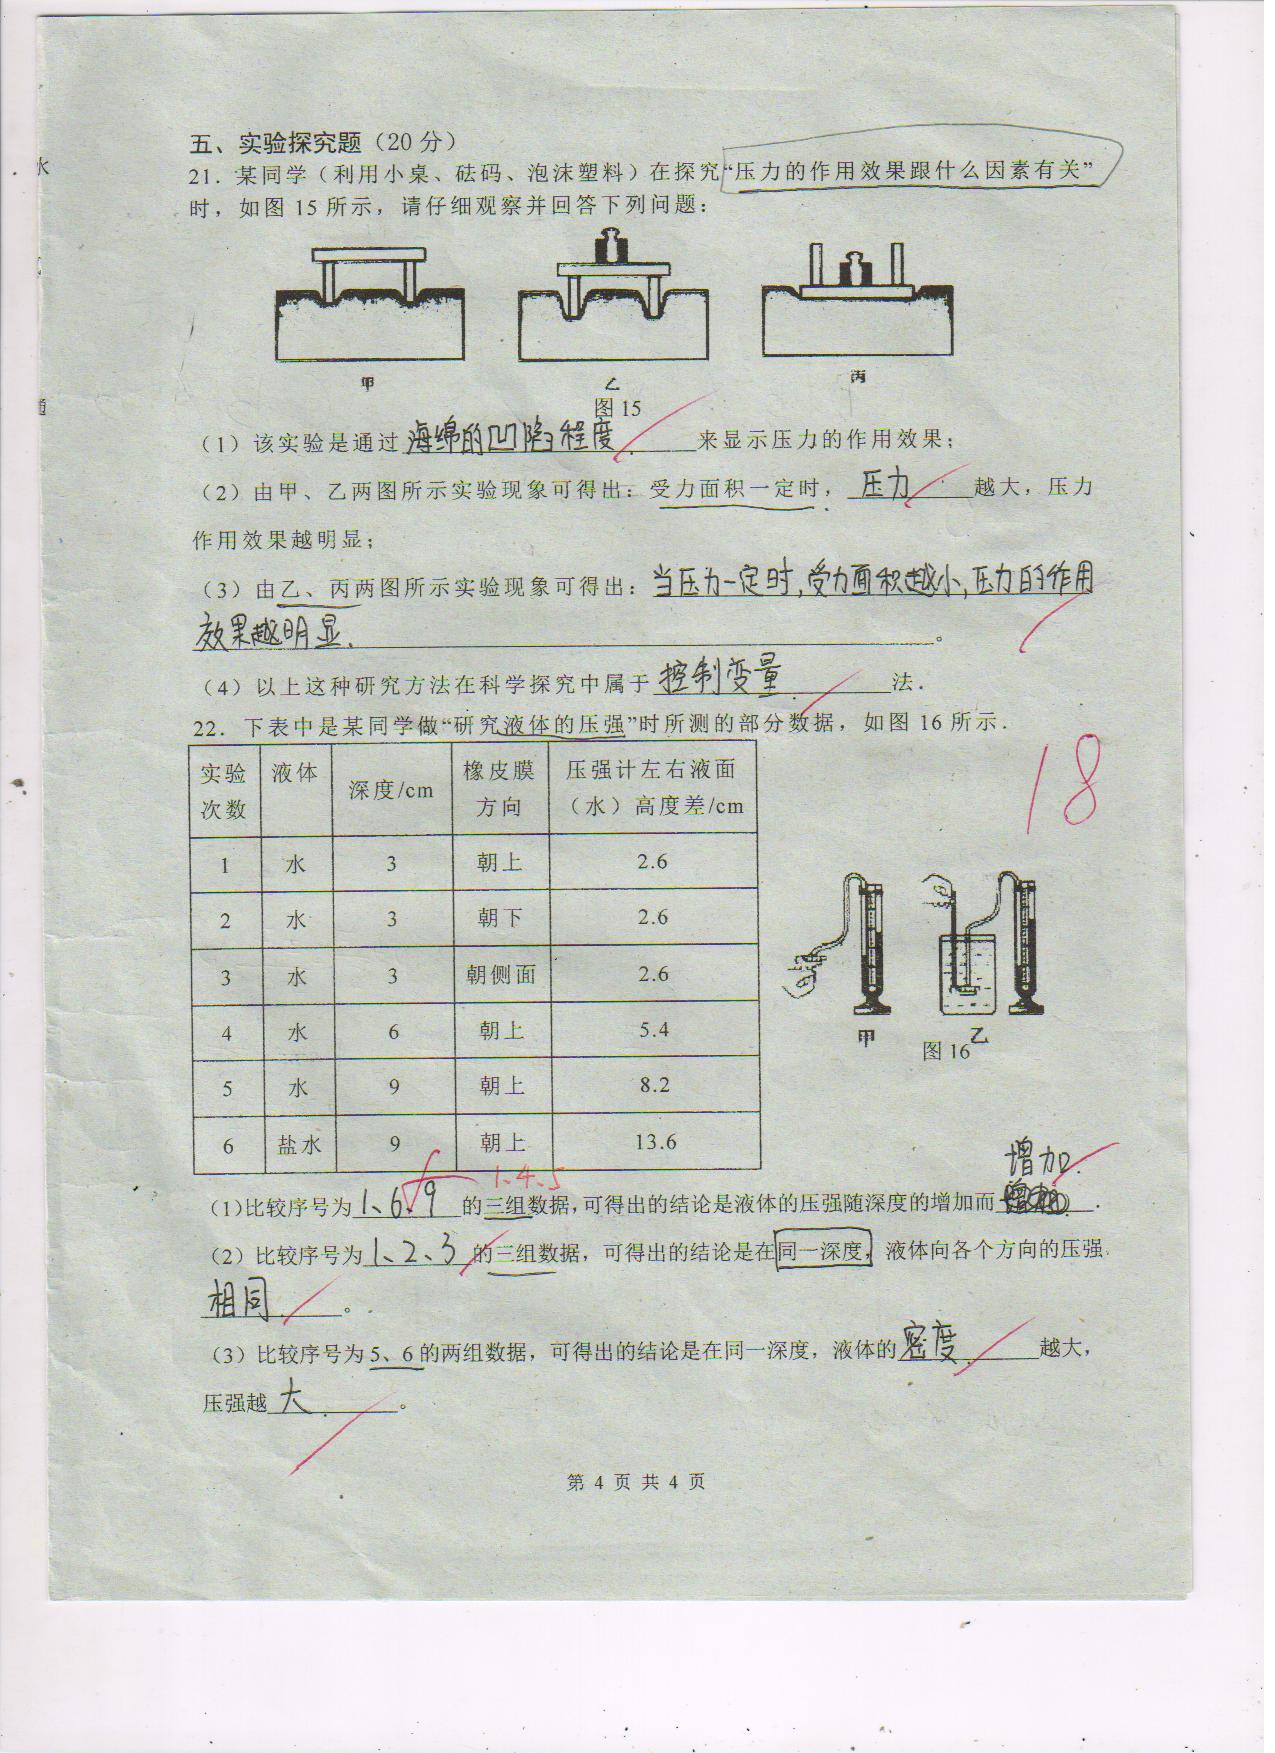 五、实验探究题（20 分）
21．某同学（利用小桌、砝码、泡沫塑料）在探究“压力的作用效果跟什么因素有关”
时，如图 15 所示，请仔细观察并回答下列问题：
甲 乙 丙
图 15
（1）该实验是通过海绵的凹陷程度.来显示压力的作用效果；
（2）由甲、乙两图所示实验现象可得出：受力面积一定时，压力越大，压力
作用效果越明显；
（3）由乙、丙两图所示实验现象可得出：当压力一定时,受力面积越小,压力的作用
效果越明显.。
（4）以上这种研究方法在科学探究中属于控制变量.法．
22．下表中是某同学做“研究液体的压强”时所测的部分数据，如图 16 所示．
18
实验次数 液体 深度/cm 橡皮膜方向 压强计左右液面（水）高度差/cm
1 水 3 朝上 2.6
2 水 3 朝下 2.6
3 水 3 朝侧面 2.6
4 水 6 朝上 5.4
5 水 9 朝上 8.2
6 盐水 9 朝上 13.6
甲 乙
图 16
1.4.5
增加.
（1）比较序号为1、6、9的三组数据，可得出的结论是液体的压强随深度的增加而．
（2）比较序号为1、2、3的三组数据，可得出的结论是在同一深度，液体向各个方向的压强
相同.。
（3）比较序号为 5、6 的两组数据，可得出的结论是在同一深度，液体的密度.越大，
压强越大.。
第 4 页 共 4 页
水
通